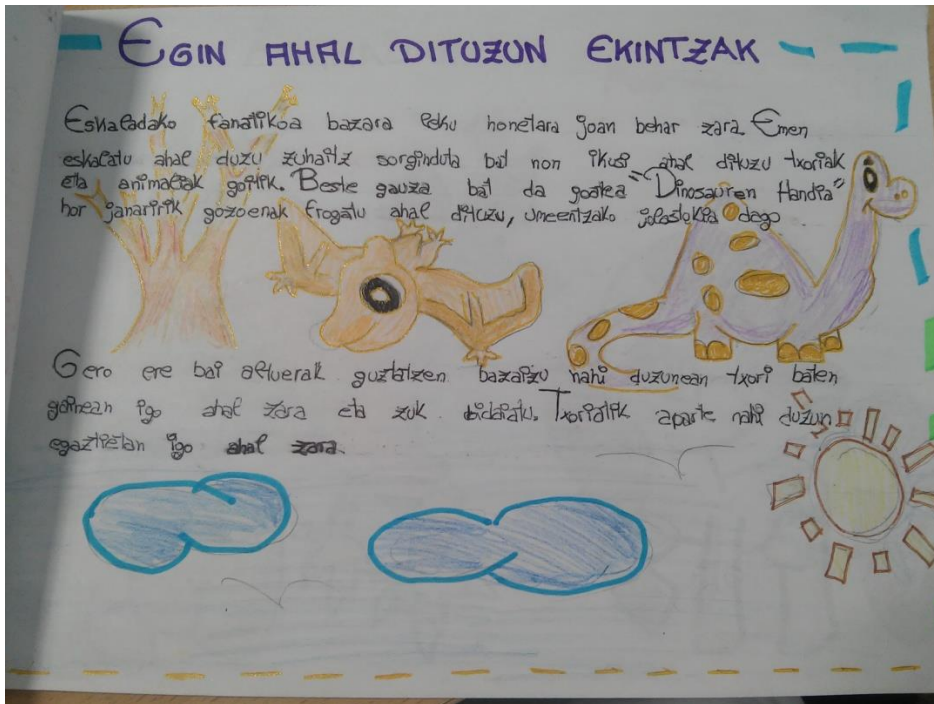 EGIN AHAL DITUZUN EKINTZAK
Eskaladako fanatikoa bazara leku honetara joan behar zara. Emen
eskalatu ahal duzu zuhaitz sorgindula bat non ikusi ahal dituzu txoriak
eta animaliak goitik. Beste gauza bat da gostea "Dinosauren Handia"
hor janaririk gozoenak frogatu ahal dituzu, umeentzako jolaslekua dago
Gero ere bai altuerak guztatzen bazaizu nahi duzunean txori baten
gainean igo ahal zara eta zuk bidaiatu. Txoriatik aparte nahi duzun
egaztietan igo ahal zara.